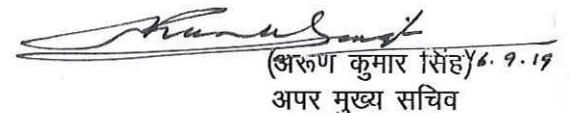 (अरूण कुमार सिंह) 6.9.19
अपर मुख्य सचिव